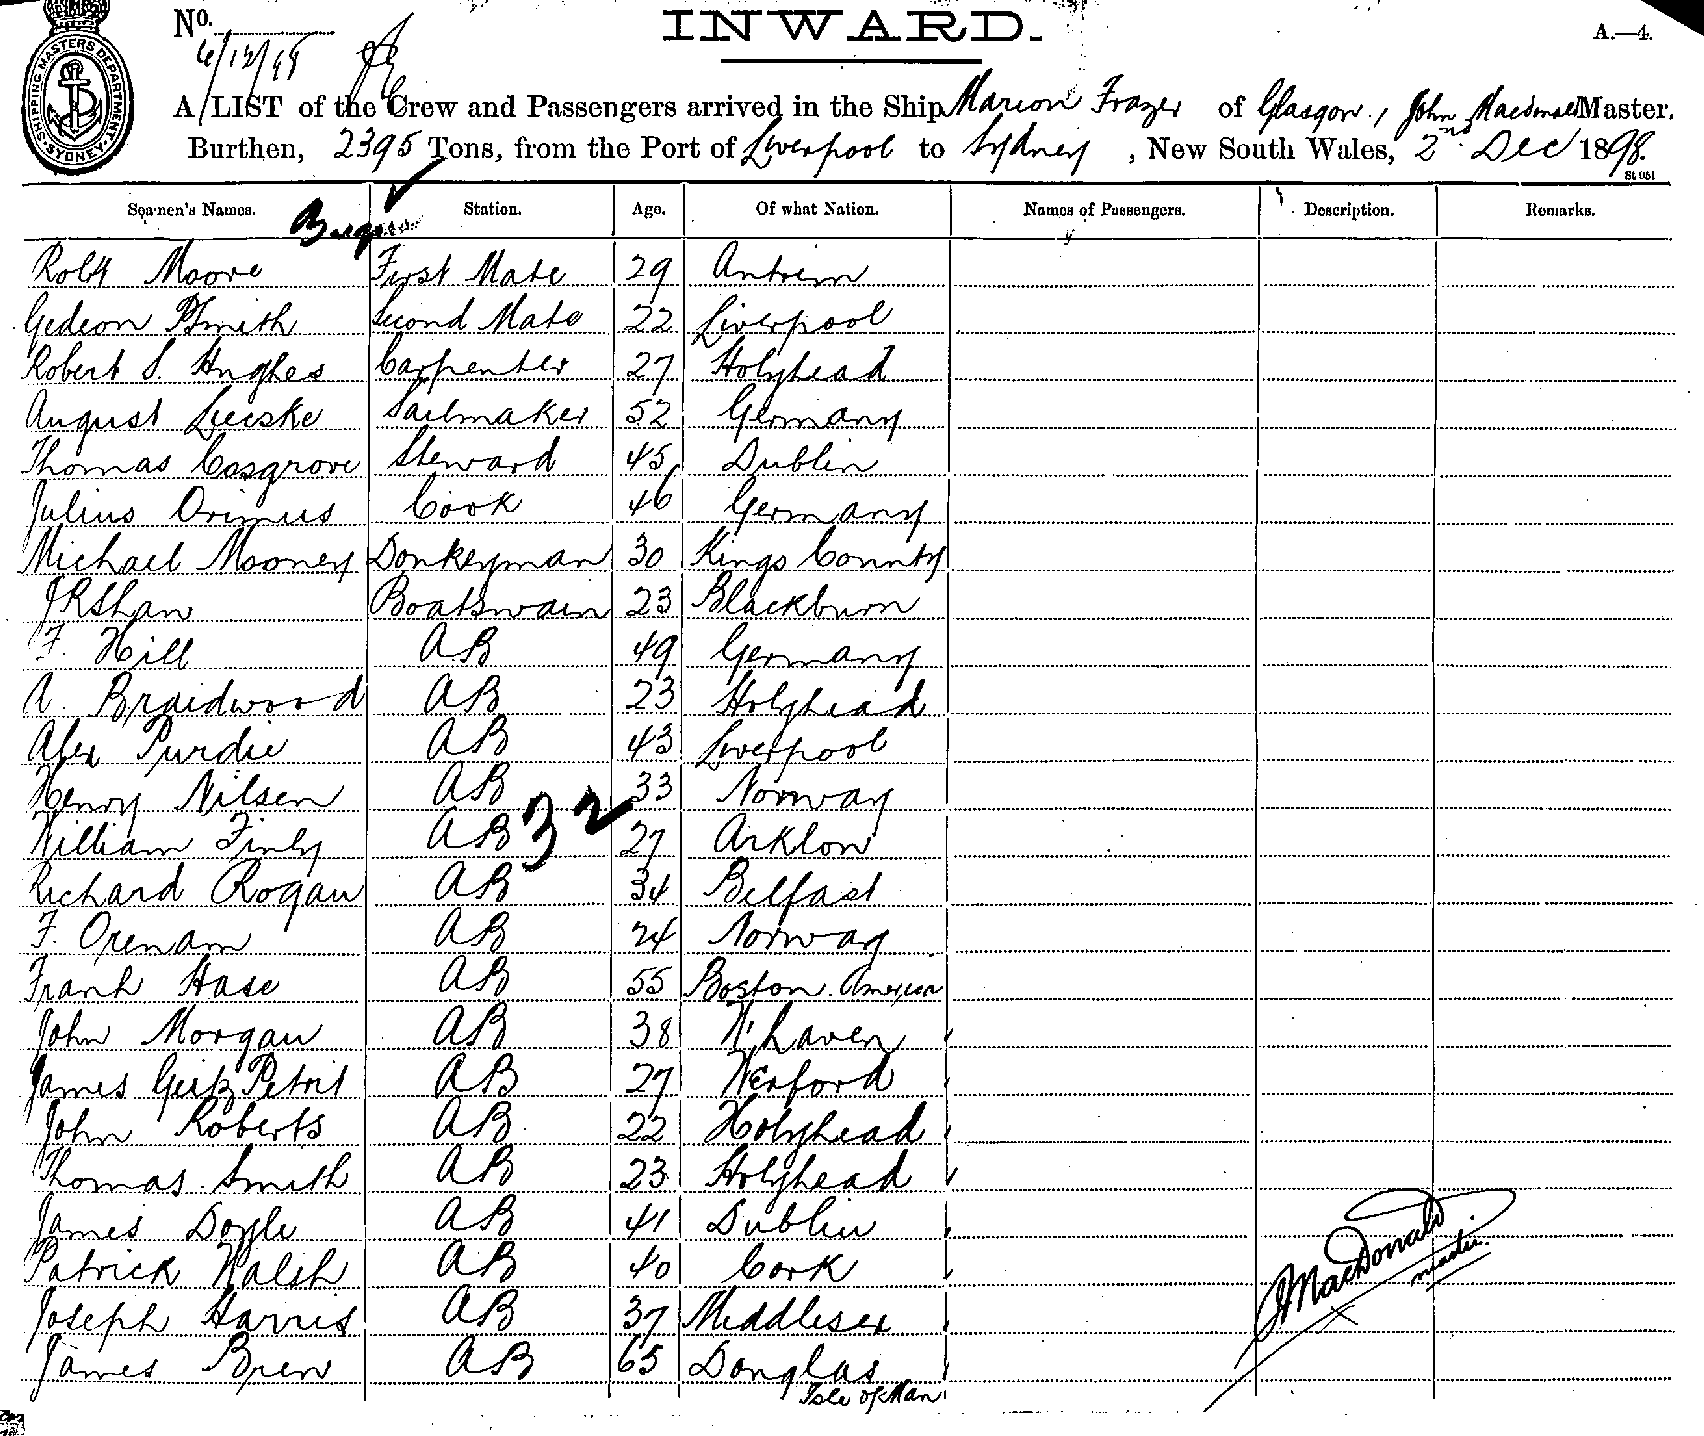 No. INWARD. A.—4.
SHIPPING MASTERS DEPARTMENT
SYDNEY
6/12/98
A LIST of the Crew and Passengers arrived in the Ship Marion Frazer of Glasgow, John Macdonald Master.
Burthen, 2395 Tons, from the Port of Liverpool to Sydney, New South Wales, 2nd Dec 1898.
Seamen's Names. Station. Age. Of what Nation. Names of Passengers. Description. Remarks.
Robt Moore First Mate 29 Antrim
Gedeon P Smith Second Mate 22 Liverpool
Robert S. Hughes Carpenter 27 Holyhead
August Lieske Sailmaker 52 Germany
Thomas Cosgrove Steward 45 Dublin
Julius Orimus Cook 46 Germany
Michael Mooney Donkeyman 30 Kings County
J R Shaw Boatswain 23 Blackburn
F. Hill AB 49 Germany
A. Braidwood AB 23 Holyhead
Alex Purdie AB 43 Liverpool
Henry Nilsen AB 33 Norway
32
William Finly AB 27 Arklow
Richard Rogan AB 34 Belfast
F. Orenam AB 24 Norway
Frank Hase AB 55 Boston America
John Morgan AB 38 W'haven
James Petrit AB 27 Wexford
John Roberts AB 22 Holyhead
Thomas Smith AB 23 Holyhead
James Doyle AB 41 Dublin
Patrick Walsh AB 40 Cork
Joseph Harris AB 37 Middlesex
James Bren AB 65 Douglas
Isle of Man
J MacDonald
master.